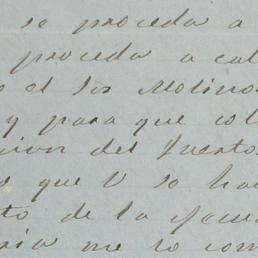 se proceda a
proceda a cal
o el Sôr Molino
y para que col
cion del puerto
que V so ha
to de la
me lo com